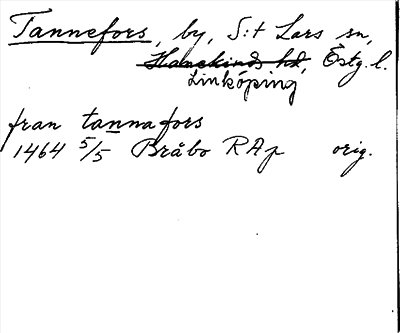 Tannefors, by, S:t Lars sn,
Hanekinds hd, Östg.l.
Linköping
fran tannafors
1464 5/5 Bråbo RAp orig.